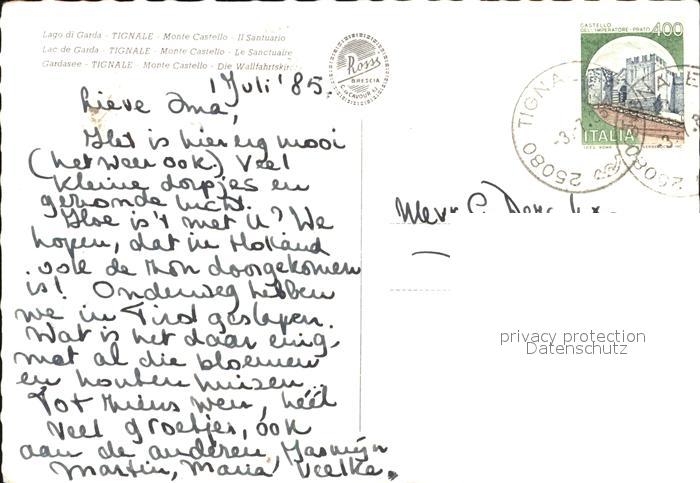 Lago di Garda - TIGNALE - Monte Castello - Il Santuario
Lac de Garda - TIGNALE - Monte Castello - Le Sanctuaire
Gardasee - TIGNALE - Monte Castello - Die Wallfahrtskir
Ross
BRESCIA
C. so CAVOUR 52
CASTELLO
DELL'IMPERATORE - PRATO
400
ITALIA
25080 TIGNA
25080
1 Juli '85.
Lieve Oma,
Het is hier erg mooi
(het weer ook). Veel
kleine dorpjes en
gezonde lucht.
Hoe is 't met U? We
hopen, dat in Holland
ook de zon doorgekomen
is! Onderweg hebben
we in Tirol geslapen.
Wat is het daar enig,
met al die bloemen
en houten huizen.
Tot ziens weer, héél
veel groetjes, óók
aan de anderen, Jasmijn
Martin, Maria, Veelke.
Mevr. C.
privacy protection
Datenschutz